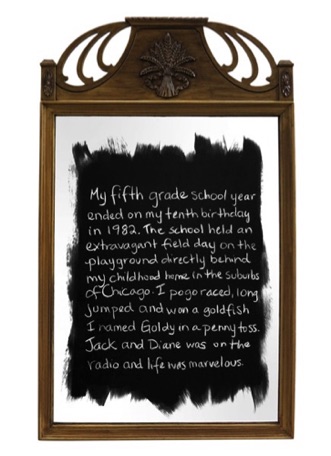 My fifth grade school year
ended on my tenth birthday
in 1982. The school held an
extravagant field day on the
playground directly behind
my childhood home in the suburbs
of Chicago. I pogo raced, long
jumped and won a goldfish
I named Goldy in a penny toss.
Jack and Diane was on the
radio and life was marvelous.